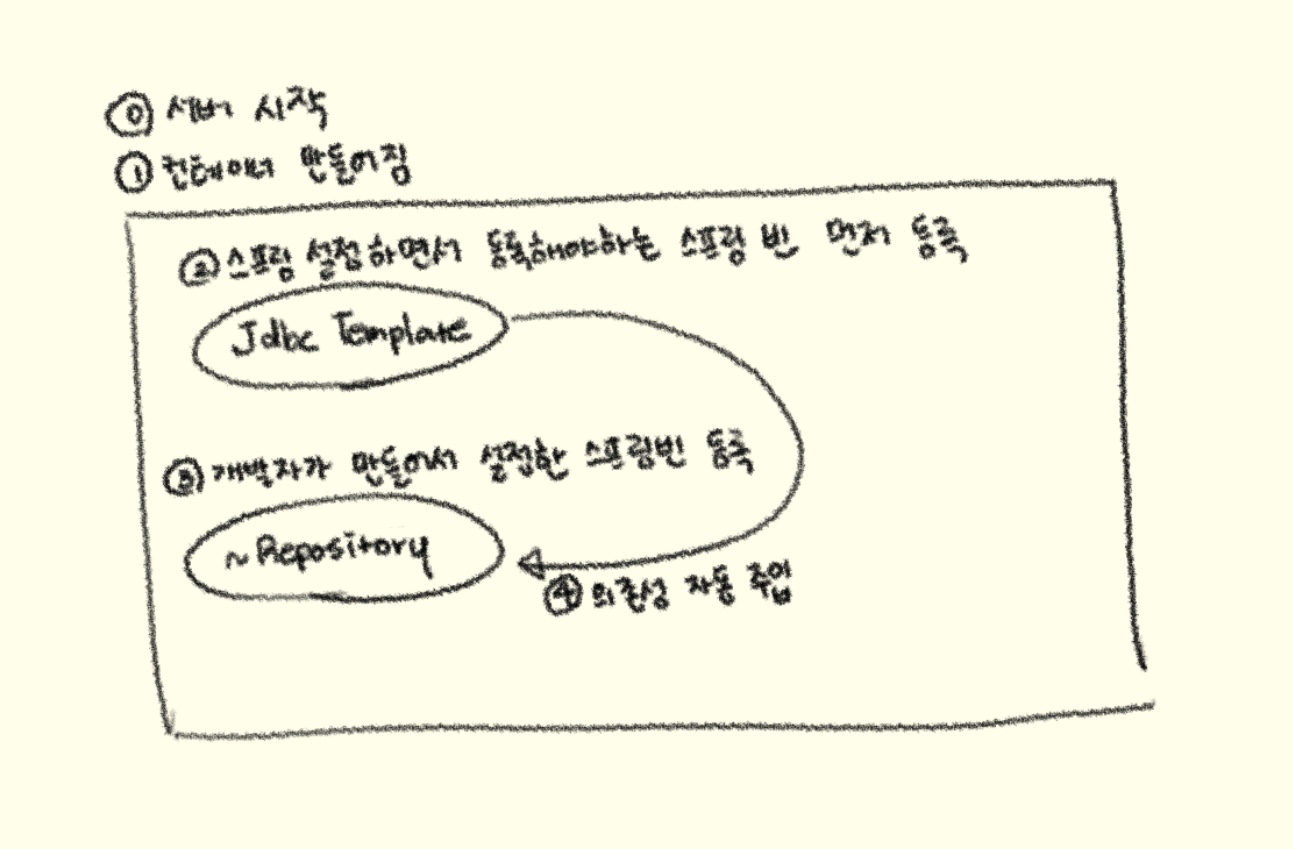 ⓪ 서버 시작
① 컨테이너 만들어짐
② 스프링 설정하면서 등록해야하는 스프링 빈 먼저 등록
Jdbc Template
③ 개발자가 만들어서 설정한 스프링빈 등록
~Repository
④ 의존성 자동 주입